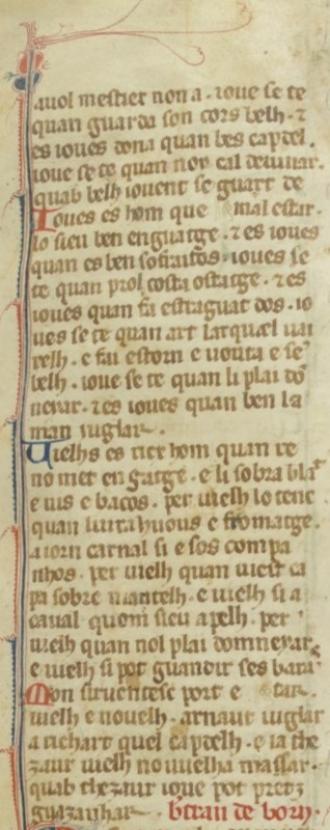 auol mestier non a . ioue se te
quan guarda son cors belh . ⁊
es ioues dona quan bes capdel .
ioue se te quan noy cal deuinar .
quab belh iouent se guart de
Ioues es hom que mal estar .
lo sieu ben enguatge . ⁊ es ioues
quan es ben sofraitos . ioues se
te quan prol costa ostatge . ⁊ es
ioues quan fa estraguat dos . io
ues se te quan art larquel uai
xelh . e fai estorn e uouta e se
belh . ioue se te quan li plai dō
neiar . ⁊ es ioues quan ben la
man iuglar .
Uielhs es ricx hom quan re
no met en gatge . e li sobra bla
e uis e bacos . per uielh lo tenc
quan liura huous e fromatge .
a iorn carnal si e sos compa
nhos . per uielh quan uiest ca
pa sobre mantelh . e uielh si a
caual quom sieu apelh . per
uielh quan nol plai domneyar
e uielh si pot guandir ses bara
Mon siruentesc port e tar .
uielh e nouelh . arnaut iuglar
a richart quel capdelh . e ia the
zaur uielh no uuelha massar .
quab thezaur ioue pot pretz
guazanhar . b͞tran de born .